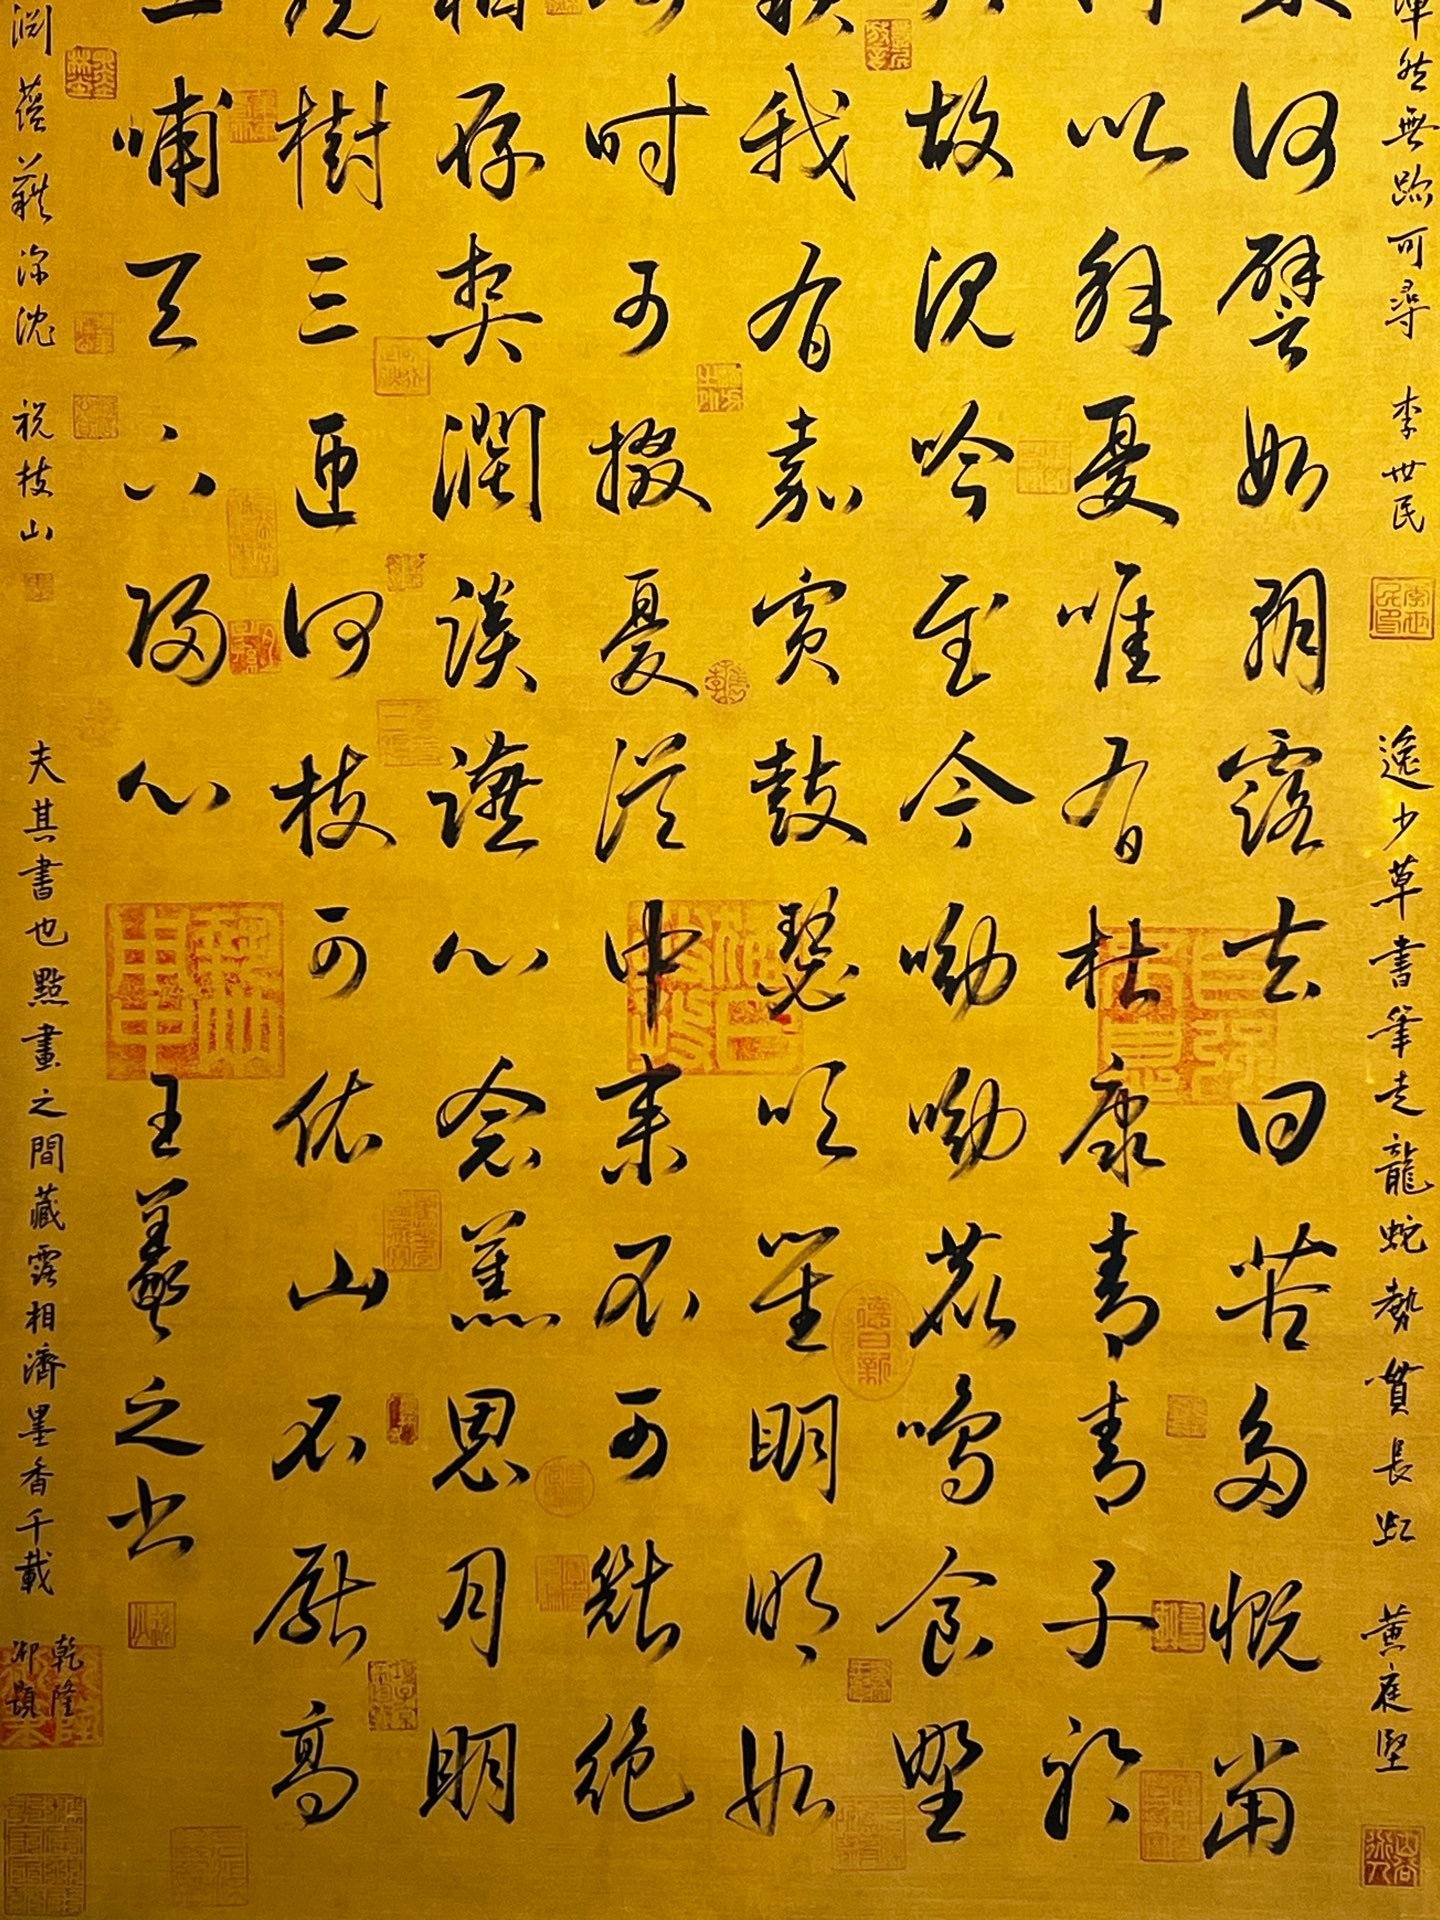 渾然無跡可尋 李世民
逸少草書筆走龍蛇勢貫長虹 黃庭堅
何譬如朝露去日苦多慨當
以解憂唯有杜康青青子衿
故沈吟至今呦呦鹿鳴食野
我有嘉賓鼓瑟吹笙明明如
時可掇憂從中來不可斷絕
存契闊談讌心念舊恩月明
樹三匝何枝可依山不厭高
哺天下歸心 王羲之書
淵蘊藉深沈 祝枝山
夫其書也點畫之間藏露相濟墨香千載
乾隆
御題
德日新